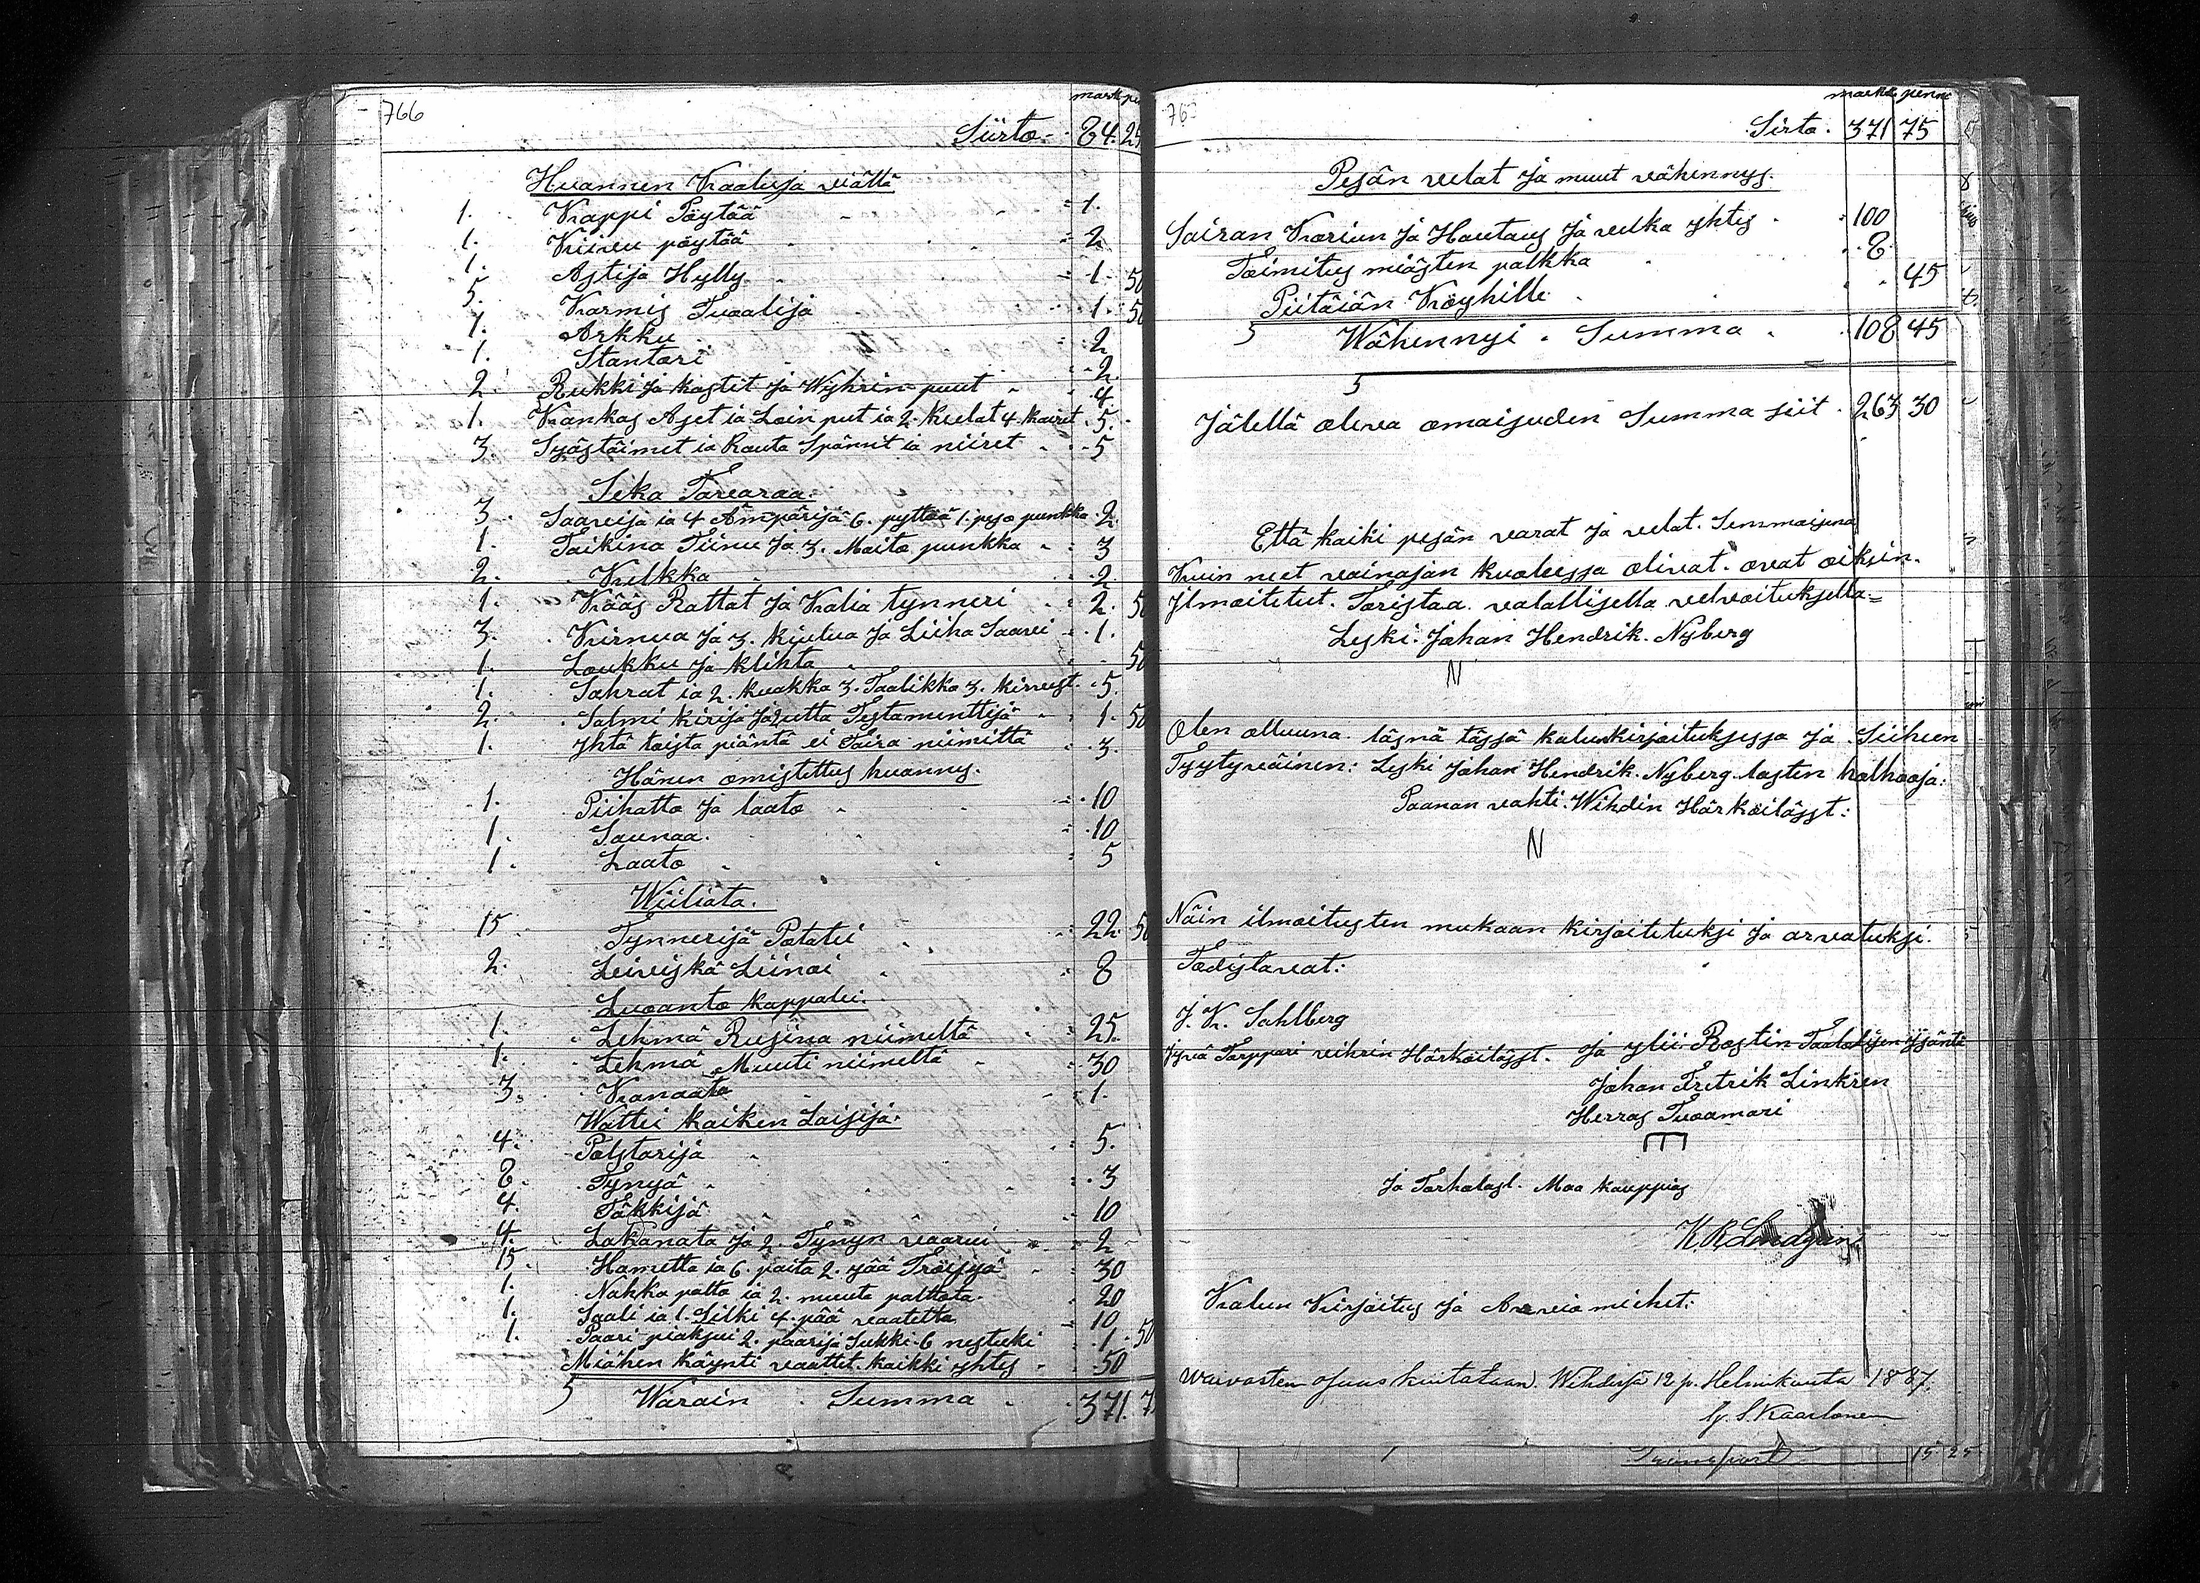 766
mark pe
Siirto 84. 25
Huannen Kaaluja wiättä
1. Kappi Pöytää 1.
1. Kiiwu pöytää 2
1. Astija Hylly 1. 50
5. Karmis Tuoalija 1. 50
1. Arkku 2
1. Stantari 2
2. Rukki ja kastit ja Wyhrin puut 4
1. Kankas Aset ia Loin put ia 2. kuelat 4. kairet 5.
3. Syästäimet ia Rauta Spännit ia niiret 5
Seka Tawaraa:
3. Saaweija ia 4 Ämpärijä 6. pyttöä 1. peso punkka 2.
1. Taikina Tiinu ja 3. Maito punkka 3
2. Kelkka 2.
1. Kääs Rattat ja Kalia tynneri 2. 50
3. Kirnua ja 3. kiulua ja Liiha Saawi 1.
1. Loukku ja klihta 50
1. Sahrat ia 2. kuokka 3. Taalikko 3. kirwest 5.
2. Salmi kirija ja utta Testamenttijä 1. 50
1. yhtä toista piäntä ei Taira niimittä 3.
Hänen omistettus huannus.
1. Piihatto ja laato 10
1. Saunaa. 10
1. Laato 5
Wiiliata.
15 Tynnerijä Potatii 22. 50
2. Leiwiskä Liinoi 8
Luoanto kappalei.
1. Lehmä Rusiina niimeltä 25.
1. Lehmä Muuti niimeltä 30
3. Kanaata 1.
Wattei kaiken Laisija.
4. Polstarija 5.
8. Tynyä 3
4. Täkkijä 10
4. Lakanata ja 2 Tynyn waarui 2
15. Hametta ia 6. paita 2. yää Tröijyä 30
1. Nahka palto ia 2. muuta palttota 20
1. Saali ia 1. Silki 4. pää waatetta 10
1. Paari piaksui 2. paarija Sukki 6 nestuki 1. 50
Miähen käynti waattet kaikki yhtes 50
5 Warain Summa 371. 7
markk penni
Sirto. 371 75
Pesän welat ja muut wähennys.
Sairan Koriun ja Hautaus ja welka yhtes 100
Toimitus miästen palkka 8
Piitäiän Köyhille 45
5 Wähennys Summa 108 45
5
Jälellä olewa omaisuden Summa siit 263 30
Että kaiki pesän warat ja welat. Semmaisena
Kuin neet wainajan kuolessa oliwat. owat oiksin.
Jlmoitetut. Toristaa walallisella welwoituksella=
Leski. Johan Hendrik. Nyberg
N
Olen olluuna läsnä tässä kalunkirjoituksessa ja Siihen
Tyytywäinen: Leski Johan Hendrik. Nyberg lasten holhooja:
Paanan vahti. Wihdin Härköilässt:
N
Näin ilmoitusten mukaan kirjoitetuksi ja arwatuksi.
Todistawat:
J. K. Sahlberg
Jywä Torppari wihrin Härköiläst. ja ylii Rostin Taatalisen Jsänti
Johan Fretrik Linkren
Herras Tuoamari
ja Torholast. Maa kauppias
K. R. Lindgren
Kalun Kirjoitus ja Arwio miehet:
Waiwasten osuus kuitataan. Wihdissä 12 p. Helmikuuta 1887.
G. S. Kaarlonen
Transport 15 25